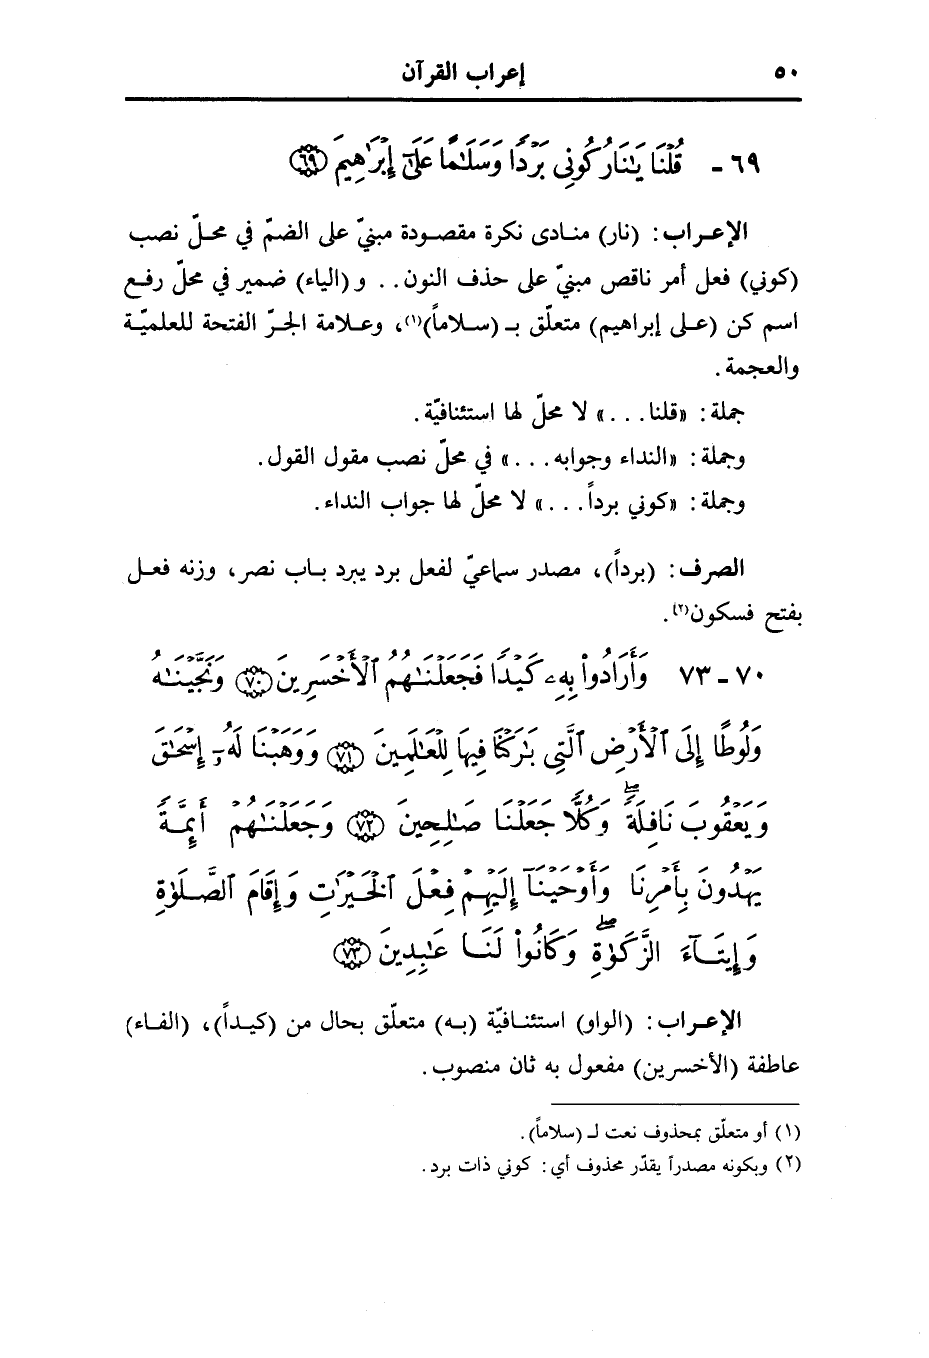 ٥٠ إعراب القرآن
٦٩ - قُلْنَا يَـٰنَارُ كُونِى بَرْدًا وَسَلَـٰمًا عَلَىٰٓ إِبْرَٰهِيمَ ﴿٦٩﴾
الإعـراب : (نار) منـادى نكرة مقصـودة مبنيّ على الضمّ في محـلّ نصب
(كوني) فعل أمر ناقص مبنيّ على حذف النون . . و (الياء) ضمير في محلّ رفـع
اسم كن (عـلى إبراهيم) متعلّق بـ (سـلاماً)(١)، وعـلامة الجـرّ الفتحة للعلميّـة
والعجمة .
جملة : «قلنا . . .» لا محلّ لها استئنافيّة .
وجملة : «النداء وجوابه . . .» في محلّ نصب مقول القول .
وجملة : «كوني برداً . . .» لا محلّ لها جواب النداء .
الصرف : (برداً)، مصدر سماعيّ لفعل برد يبرد بـاب نصر، وزنه فعـل
بفتح فسكون(٢) .
٧٠ - ٧٣ وَأَرَادُوا۟ بِهِۦ كَيْدًا فَجَعَلْنَـٰهُمُ ٱلْأَخْسَرِينَ ﴿٧٠﴾ وَنَجَّيْنَـٰهُ
وَلُوطًا إِلَى ٱلْأَرْضِ ٱلَّتِى بَـٰرَكْنَا فِيهَا لِلْعَـٰلَمِينَ ﴿٧١﴾ وَوَهَبْنَا لَهُۥٓ إِسْحَـٰقَ
وَيَعْقُوبَ نَافِلَةً ۖ وَكُلًّا جَعَلْنَا صَـٰلِحِينَ ﴿٧٢﴾ وَجَعَلْنَـٰهُمْ أَئِمَّةً
يَهْدُونَ بِأَمْرِنَا وَأَوْحَيْنَآ إِلَيْهِمْ فِعْلَ ٱلْخَيْرَٰتِ وَإِقَامَ ٱلصَّلَوٰةِ
وَإِيتَآءَ ٱلزَّكَوٰةِ ۖ وَكَانُوا۟ لَنَا عَـٰبِدِينَ ﴿٧٣﴾
الإعـراب : (الواو) استئنـافيّة (بـه) متعلّق بحال من (كيـداً)، (الفـاء)
عاطفة (الأخسرين) مفعول به ثان منصوب .
(١) أو متعلّق بمحذوف نعت لـ (سلاماً) .
(٢) وبكونه مصدراً يقدّر محذوف أي : كوني ذات برد .